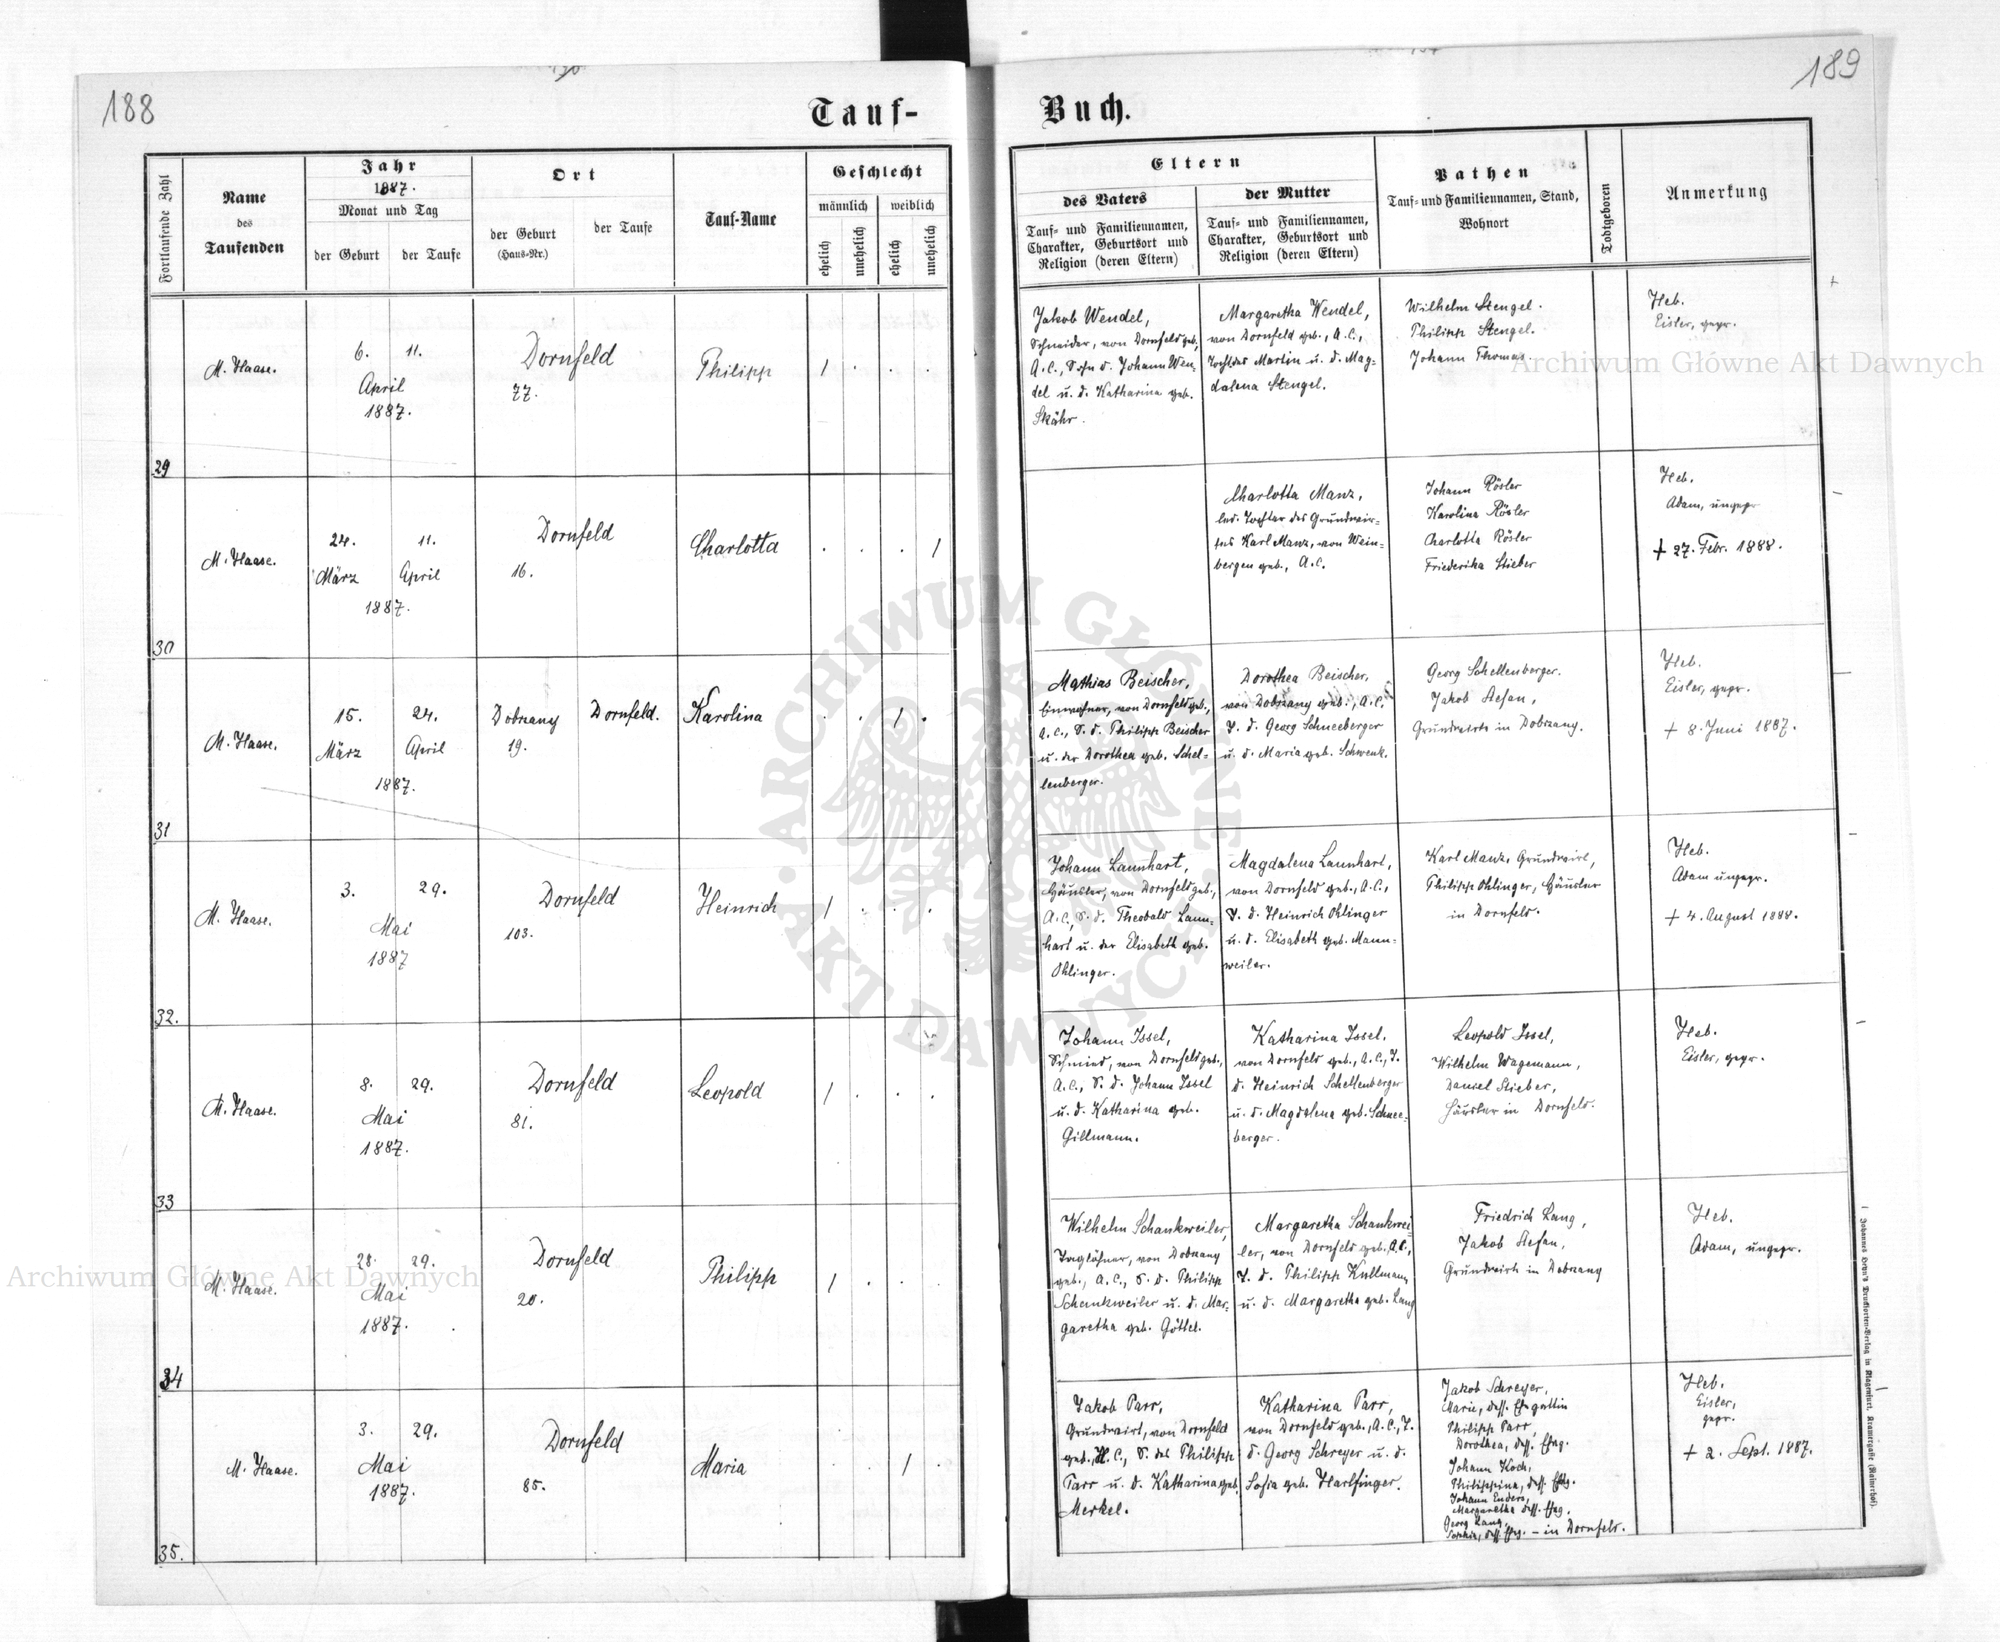 188
189
Tauf-
Buch.
Fortlaufende Zahl
Name
des
Taufenden
Jahr
1887.
Monat und Tag
der Geburt
der Taufe
Ort
der Geburt
(Haus-Nr.)
der Taufe
Tauf-Name
Geschlecht
männlich
weiblich
ehelich
unehelich
ehelich
unehelich
Eltern
des Vaters
Tauf- und Familiennamen,
Charakter, Geburtsort und
Religion (deren Eltern)
der Mutter
Tauf- und Familiennamen,
Charakter, Geburtsort und
Religion (deren Eltern)
Pathen
Tauf- und Familiennamen, Stand,
Wohnort
Todtgeboren
Anmerkung
29
M. Haase.
6. 11.
April
1887.
Dornfeld
77.
Philipp
1 . . .
Jakob Wendel,
Schneider, von Dornfeld geb.,
A.C., Sohn d. Johann Wen-
del u. d. Katharina geb.
Skähr.
Margaretha Wendel,
von Dornfeld geb., A.C.,
Tocht. des Martin u. d. Mag-
dalena Stengel.
Wilhelm Stengel.
Philipp Stengel.
Johann Thomas.
Heb.
Eisler, gepr.
30
M. Haase.
24. 11.
März April
1887.
Dornfeld
16.
Charlotta
. . . 1
Charlotta Manz,
led. Tochter des Grundwir-
tes Karl Manz, von Wein-
bergen geb., A.C.
Johann Rösler
Karolina Rösler
Charlotta Rösler
Friederika Stieber
Heb.
Adam, ungepr.
+ 27. Febr. 1888.
31
M. Haase.
15. 24.
März April
1887.
Dobrzany
19.
Dornfeld.
Karolina
. . 1 .
Mathias Beischer,
Einwohner, von Dornfeld geb.,
A.C., S. d. Philipp Beischer
u. der Dorothea geb. Schel-
lenberger.
Dorothea Beischer,
von Dobrzany geb., A.C.
T. d. Georg Schneeberger
u. d. Maria geb. Schwenk.
Georg Schellenberger.
Jakob Stefan,
Grundwirte in Dobrzany.
Heb.
Eisler, gepr.
+ 8. Juni 1887.
32.
M. Haase.
3. 29.
Mai
1887
Dornfeld
103.
Heinrich
1 . . .
Johann Launhart,
Häusler, von Dornfeld geb.,
A.C., S. d. Theobald Laun-
hart u. der Elisabeth geb.
Ohlinger.
Magdalena Launhart,
von Dornfeld geb., A.C.,
T. d. Heinrich Ohlinger
u. d. Elisabeth geb. Mann-
weiler.
Karl Manz, Grundwirt,
Philipp Ohlinger, Häusler
in Dornfeld.
Heb.
Adam ungepr.
+ 4. August 1888.
33
M. Haase.
8. 29.
Mai
1887.
Dornfeld
81.
Leopold
1 . . .
Johann Issel,
Schmied, von Dornfeld geb.,
A.C., S. d. Johann Issel
u. d. Katharina geb.
Gillmann.
Katharina Issel,
von Dornfeld geb., A.C., T.
d. Heinrich Schellenberger
u. d. Magdalena geb. Schnee-
berger.
Leopold Issel,
Wilhelm Wagemann,
Daniel Stieber,
Häusler in Dornfeld.
Heb.
Eisler, gepr.
34
M. Haase.
28. 29.
Mai
1887.
Dornfeld
20.
Philipp
1 . . .
Wilhelm Schankweiler,
Taglöhner, von Dobrzany
geb., A.C., S. d. Philipp
Schankweiler u. d. Mar-
garetha geb. Göttel.
Margaretha Schankwei-
ler, von Dornfeld geb., A.C.,
T. d. Philipp Kullmann
u. d. Margaretha geb. Lang
Friedrich Lang,
Jakob Stefan,
Grundwirte in Dobrzany
Heb.
Adam, ungepr.
35.
M. Haase.
3. 29.
Mai
1887.
Dornfeld
85.
Maria
. . 1 .
Jakob Parr,
Grundwirt, von Dornfeld
geb., H.C., S. des Philipp
Parr u. d. Katharina geb.
Merkel.
Katharina Parr,
von Dornfeld geb., A.C., T.
d. Georg Schreyer u. d.
Sofia geb. Harlfinger.
Jakob Schreyer,
Marie, dess. Ehegattin
Philipp Parr,
Dorothea, dess. Eheg.
Johann Koch,
Philippina, dess. Ehg.
Johann Enders,
Margaretha dess. Ehg.
Georg Lang,
Sophia, dess. Ehg. - in Dornfeld.
Heb.
Eisler,
gepr.
+ 2. Sept. 1887.
Johannes Heyn's Drucksorten-Verlag in Klagenfurt, Kramergasse (Rainerhof).
Archiwum Główne Akt Dawnych
Archiwum Główne Akt Dawnych
ARCHIWUM GŁÓWNE AKT DAWNYCH